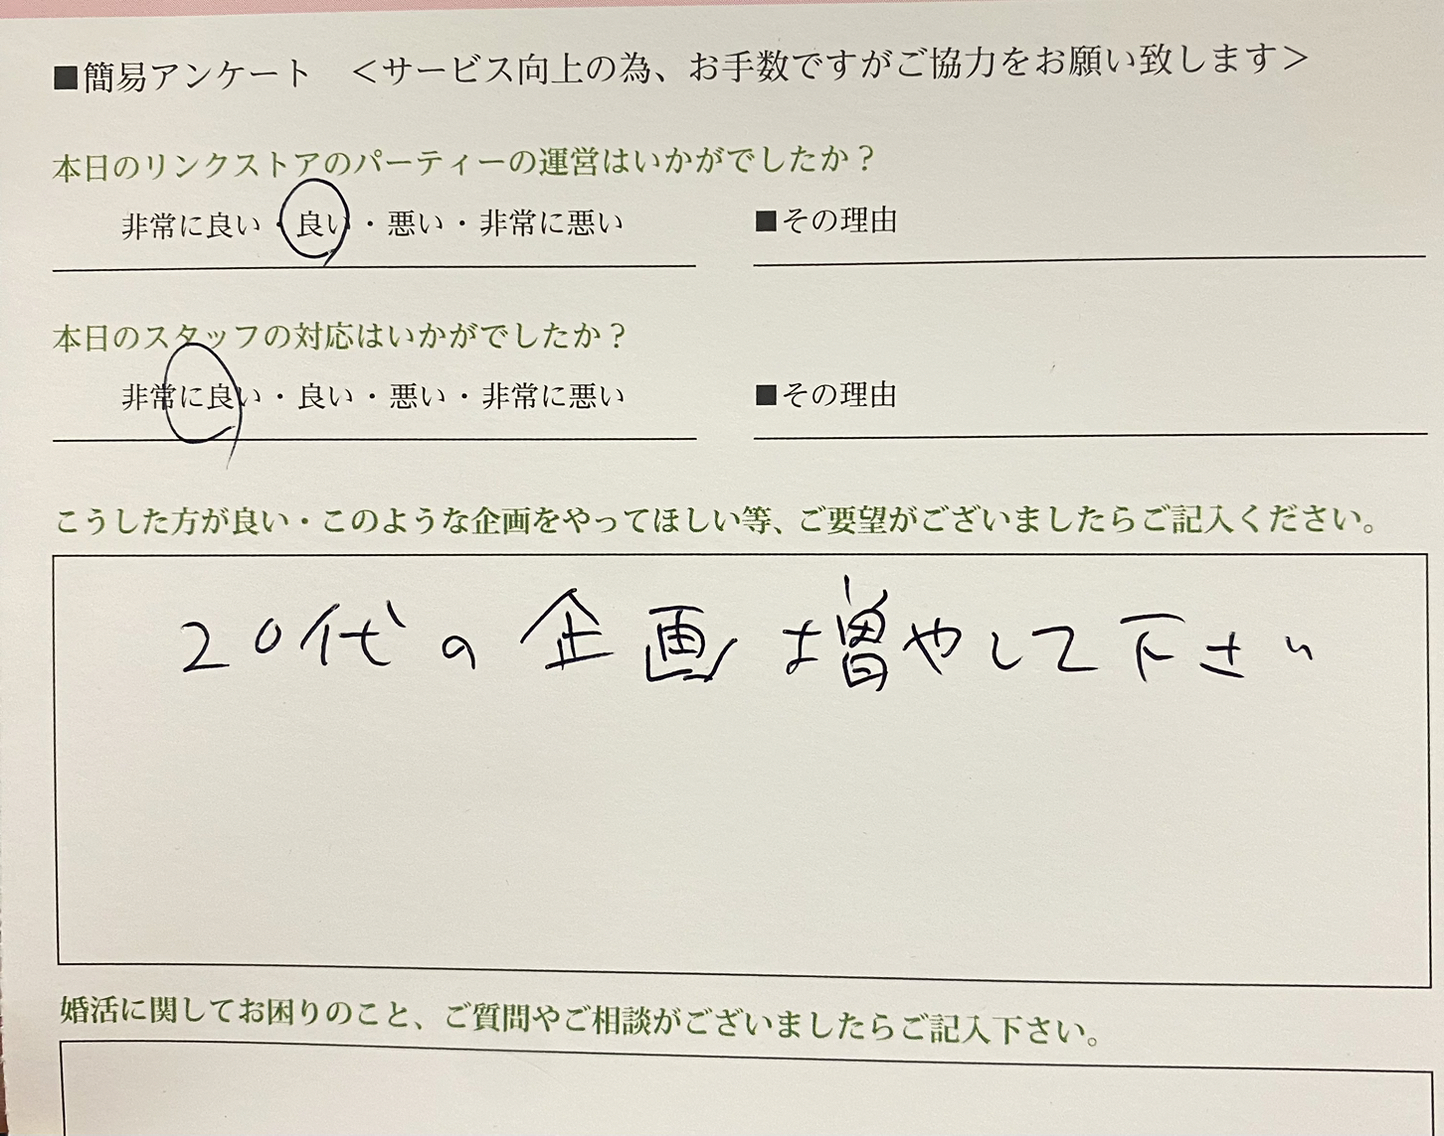 ■簡易アンケート　＜サービス向上の為、お手数ですがご協力をお願い致します＞
本日のリンクストアのパーティーの運営はいかがでしたか？
非常に良い・良い・悪い・非常に悪い　■その理由
本日のスタッフの対応はいかがでしたか？
非常に良い・良い・悪い・非常に悪い　■その理由
こうした方が良い・このような企画をやってほしい等、ご要望がございましたらご記入ください。
20代の企画増やして下さい
婚活に関してお困りのこと、ご質問やご相談がございましたらご記入下さい。